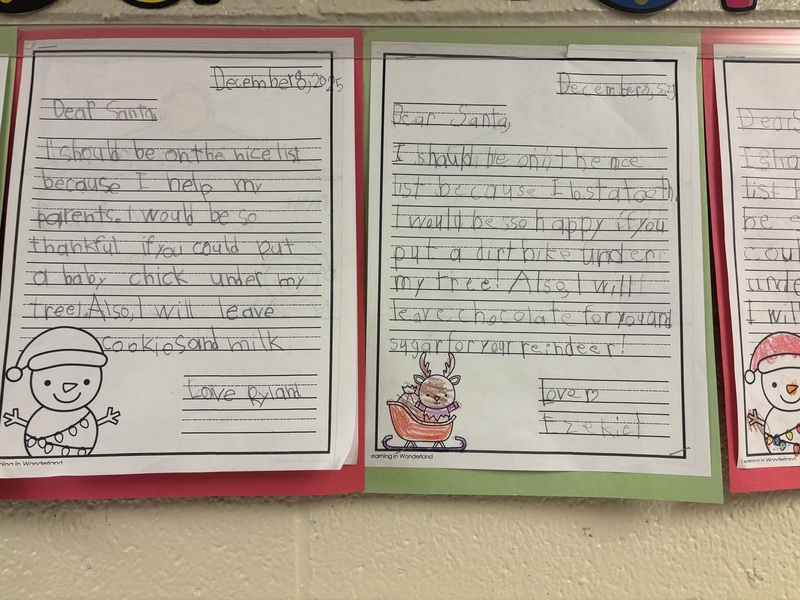 December 8, 2025
Dear Santa,
I should be on the nice list
because I help my
parents. I would be so
thankful if you could put
a baby chick under my
tree! Also, I will leave
cookies and milk
Love Ryland
ning in Wonderland
December 8, 
Dear Santa,
I should be on the nice
list because I lost a tooth.
I would be so happy if you
put a dirt bike under
my tree! Also, I will
leave chocolate for you and
sugar for your reindeer!
Love
Ezekiel
earning in Wonderland
Dear S
I sho
list b
be s
coul
unde
I will
Learning in Wonderland